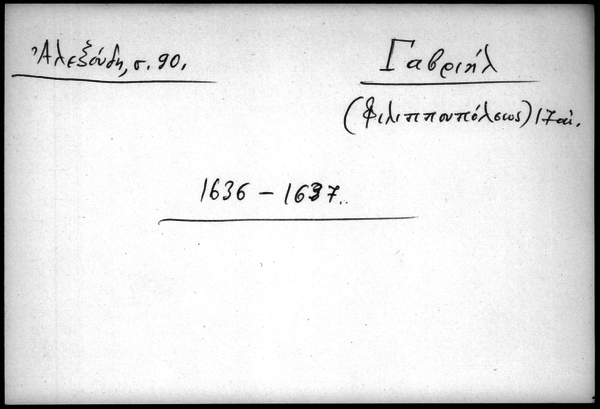 Ἀλεξούδη, σ. 90.
Γαβριήλ
(Φιλιππουπόλεως) 17 αἰ.
1636 – 1637..